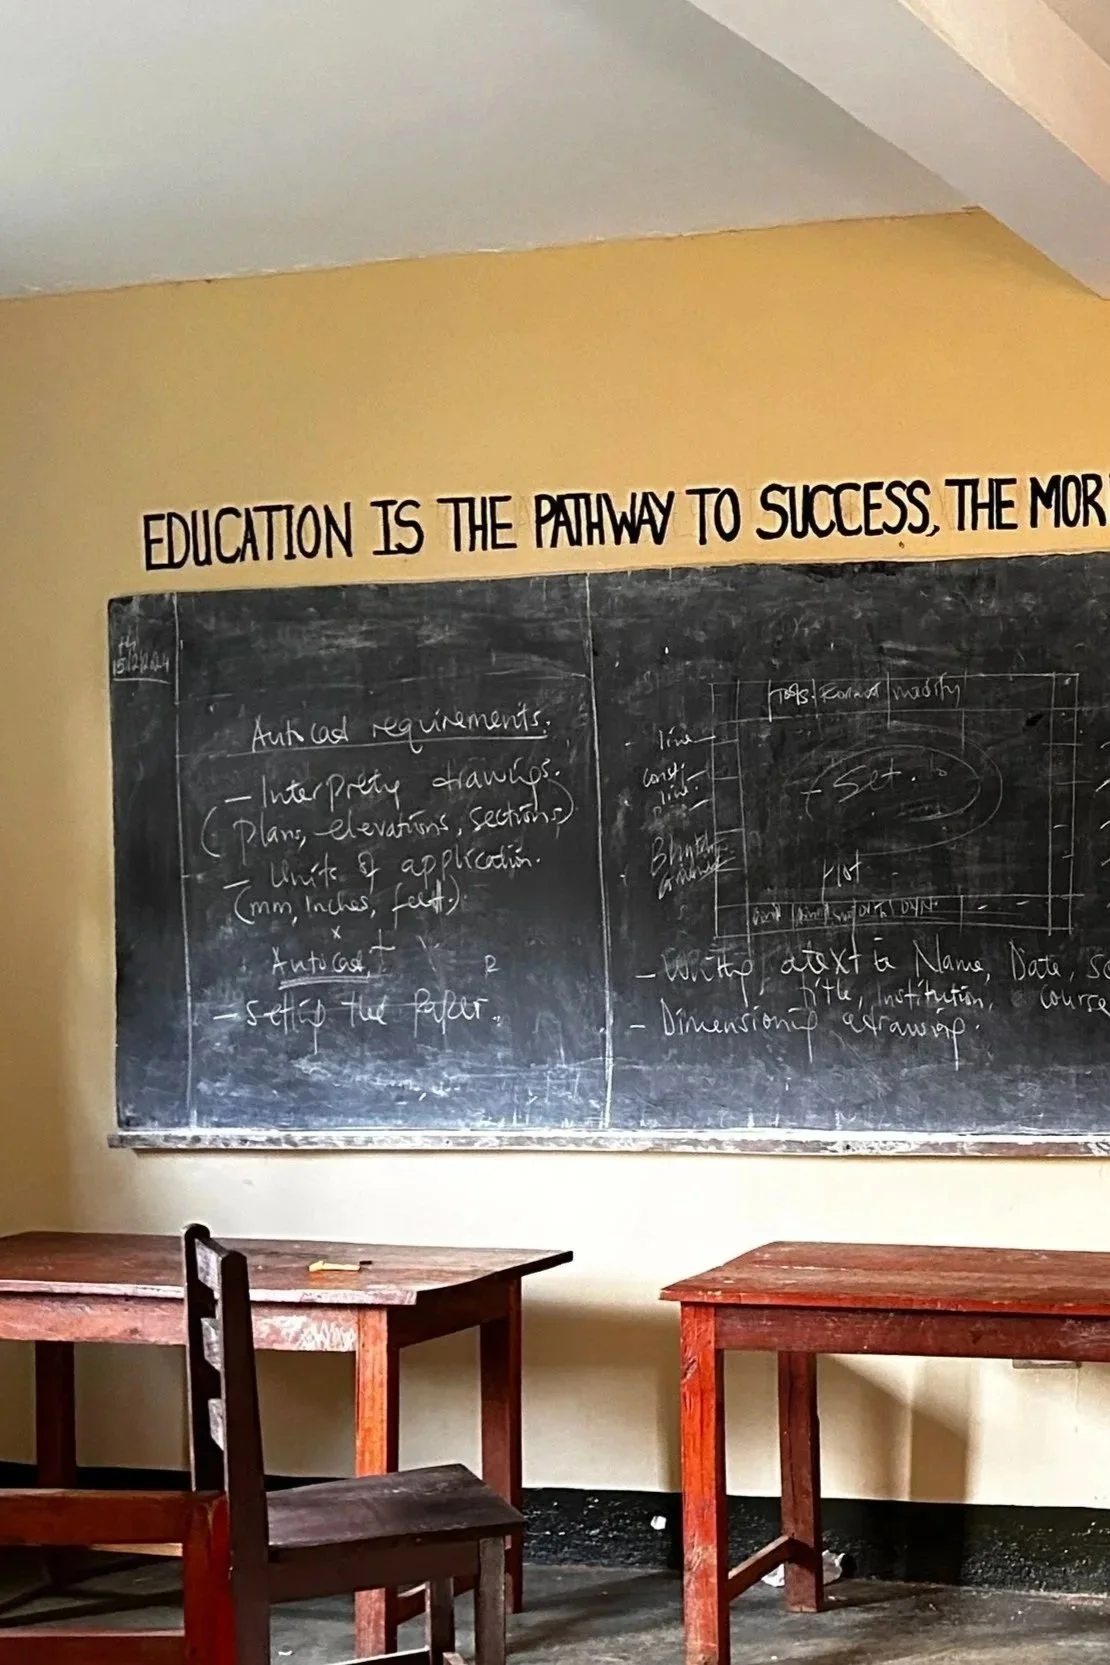 EDUCATION IS THE PATHWAY TO SUCCESS, THE MOR
th
15/2/2024
AutoCad requirements.
- Interpreting drawings.
(Plans, elevations, Sections)
- Units of application.
(mm, Inches, feet.)
x
AutoCad,
- Setting the Paper.
Tools. Format modify
line
const.
line.
- Set.
Plot
- Writing atext to Name, Date, Sc
title, Institution, course
- Dimensioning adrawing.